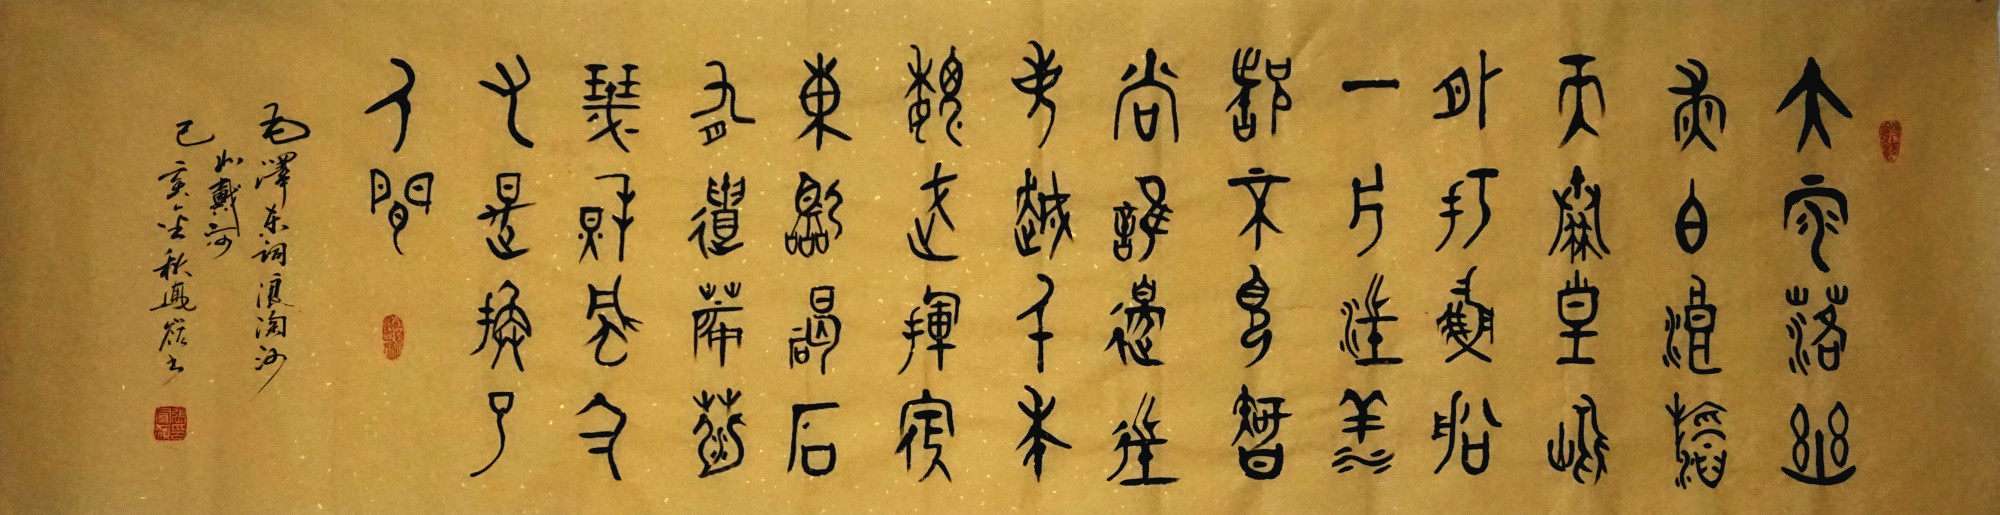 大雨落幽
燕白浪滔
天秦皇島
外打魚船
一片汪洋
都不見知
向誰邊往
事越千年
魏武揮鞭
東臨碣石
有遺篇蕭
瑟秋風今
又是換了
人間
毛澤东詞浪淘沙
北戴河
己亥金秋書